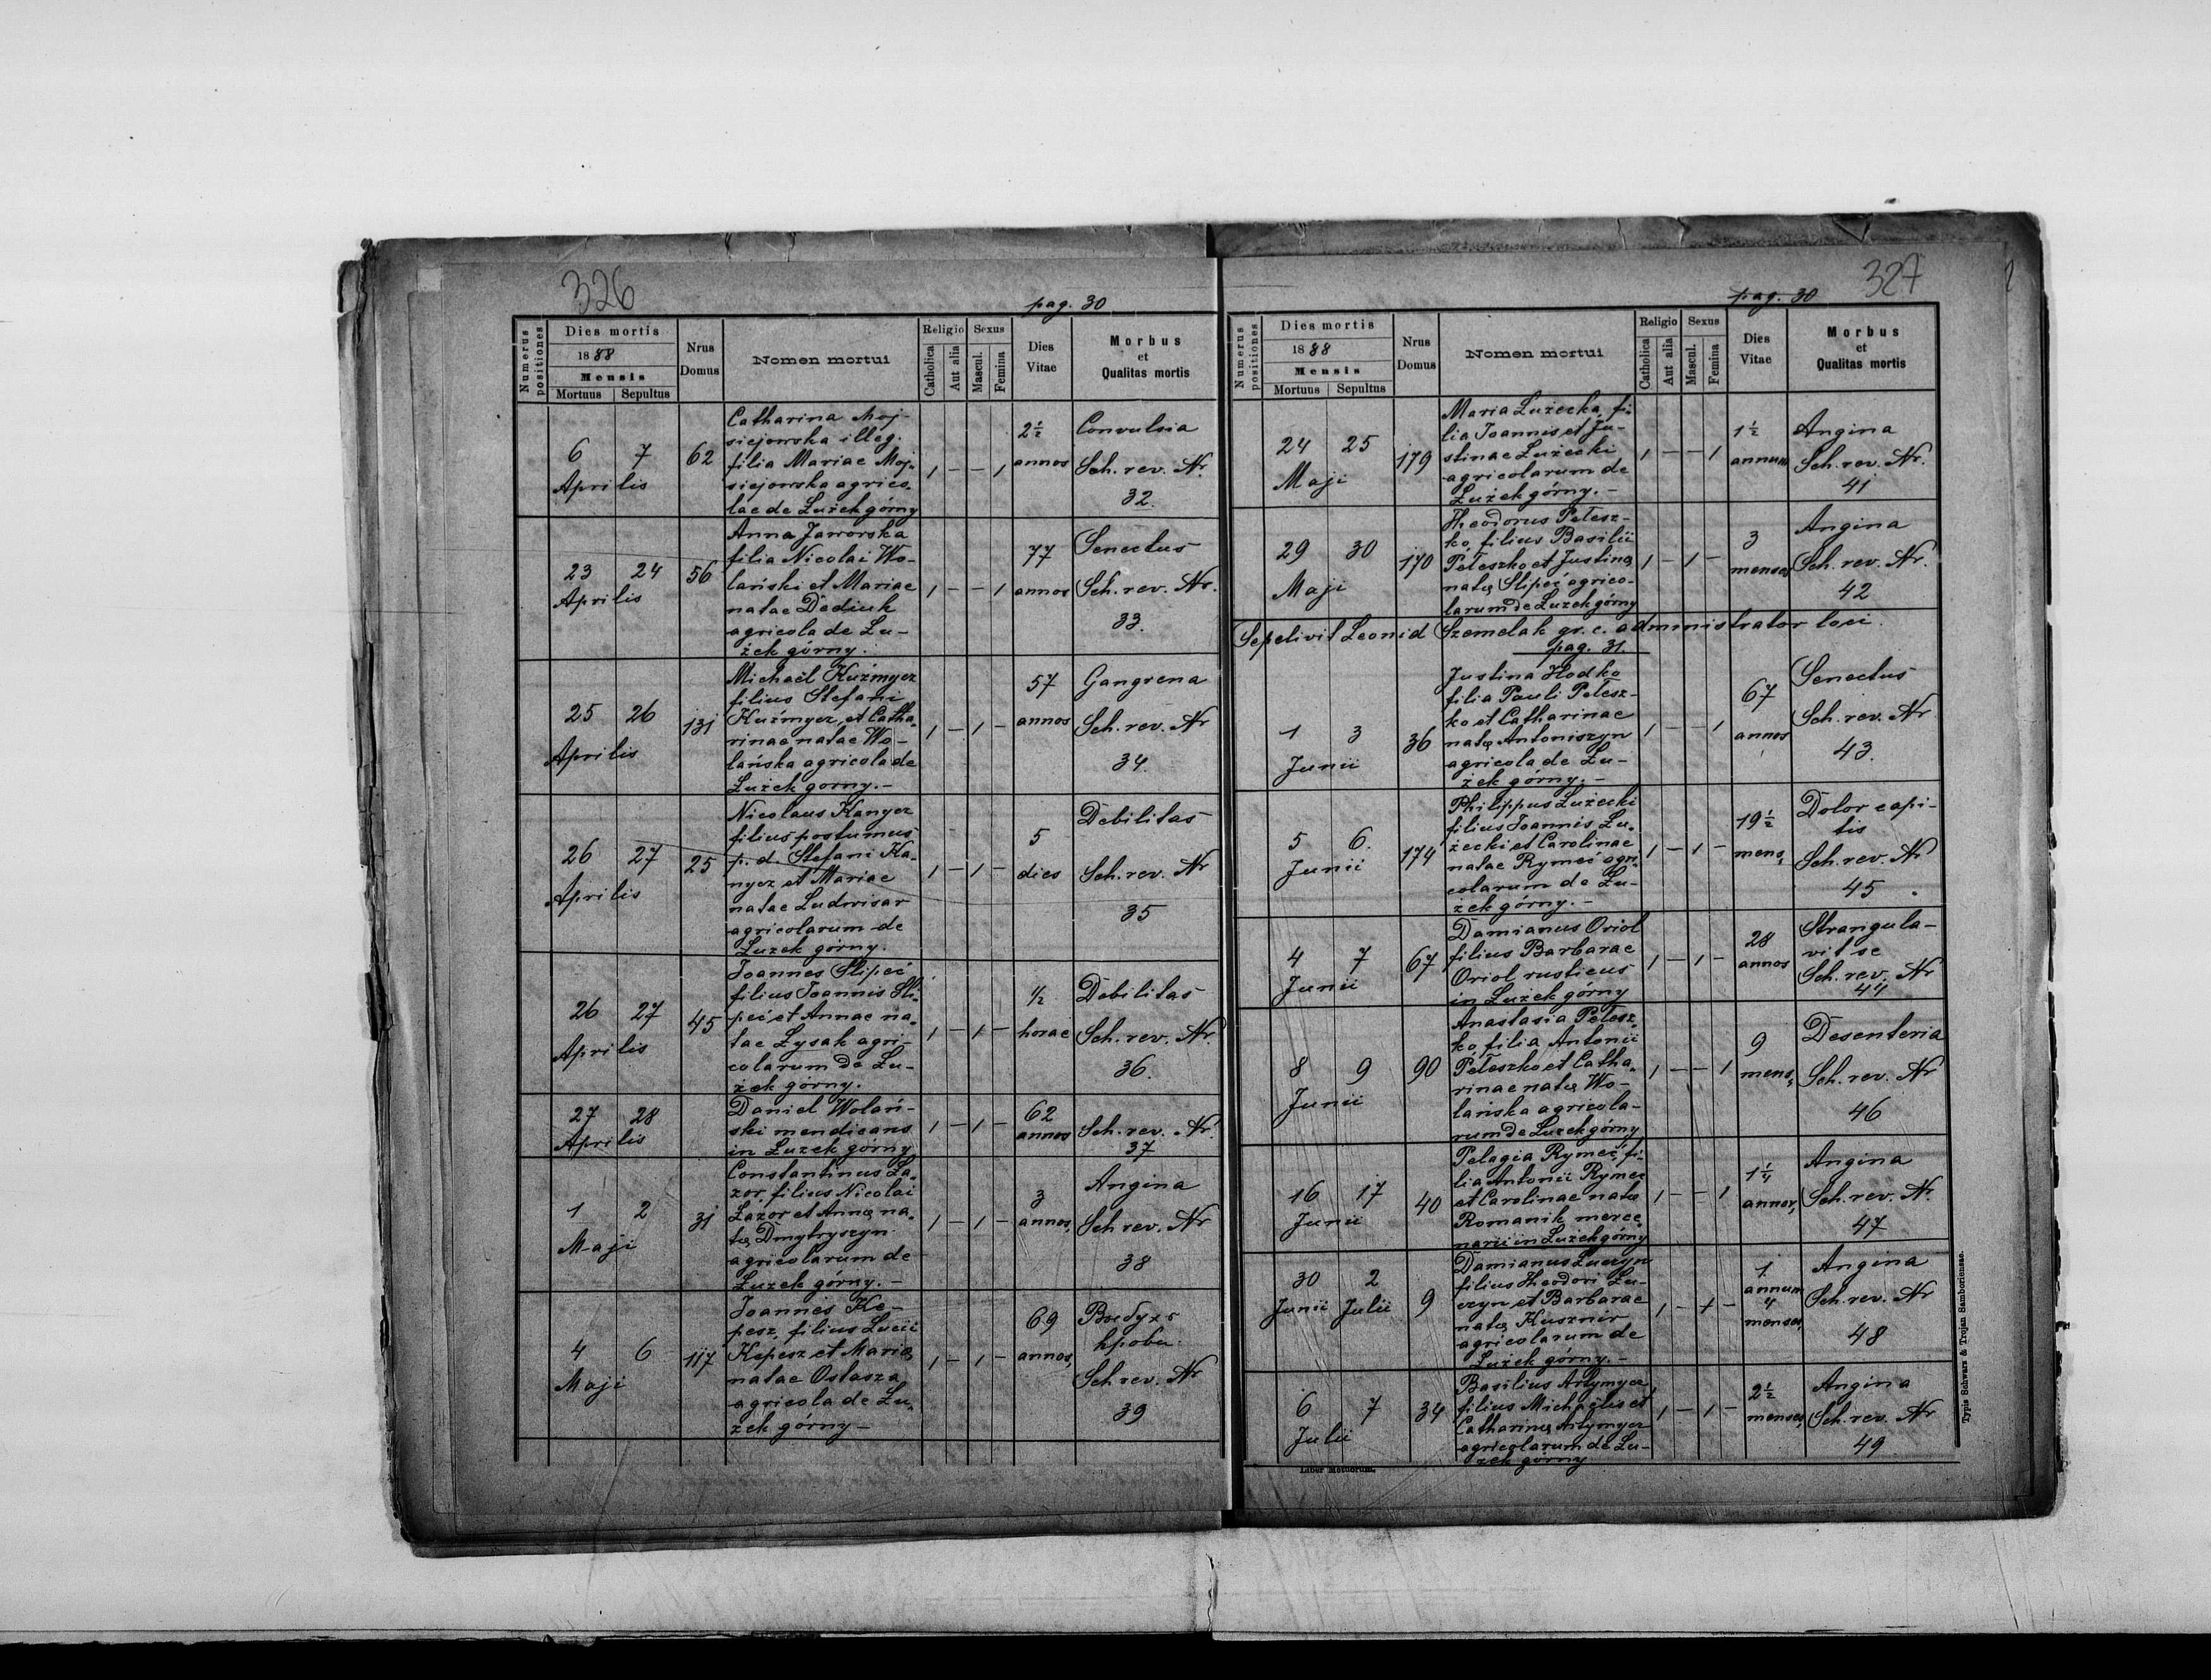 326
pag. 30
Numerus positiones
Dies mortis
1888
Mensis
Mortuus
Sepultus
Nrus Domus
Nomen mortui
Religio
Catholica
Aut alia
Sexus
Mascul.
Femina
Dies Vitae
Morbus
et
Qualitas mortis
6 7
Aprilis
62
Catharina Moj-
siejowska illeg.
filia Mariae Moj-
siejowska agrico-
lae de Łużek górny
1 — — 1
2½
annos
Convulsia
Sch. rev. Nr.
32.
23 24
Aprilis
56
Anna Jaworska
filia Nicolai Wo-
lański et Mariae
natae Dediuk
agricola de Łu-
żek górny.
1 — — 1
77
annos
Senectus
Sch. rev. Nr.
33.
25 26
Aprilis
131
Michaël Kuźmycz
filius Stefani
Kuźmycz et Catha-
rinae natae Wo-
lańska agricola de
Łużek górny. —
1 — 1 —
57
annos
Gangrena
Sch. rev. Nr
34.
26 27
Aprilis
25
Nicolaus Kanycz
filius postumus
p. d. Stefani Ka-
nycz et Mariae
natae Ludwisar
agricolarum de
Łużek górny.
1 — 1 —
5
dies
Debilitas
Sch. rev. Nr
35
26 27
Aprilis
45
Joannes Slipeć
filius Joannis Sli-
peć et Annae na-
tae Łysak agri-
colarum de Łu-
żek górny.
1 — 1 —
1/2
horae
Debilitas
Sch. rev. Nr.
36.
27 28
Aprilis
Daniel Wolań-
ski mendicans
in Łużek górny
1 — 1 —
62
annos
Sch. rev. Nr.
37
1 2
Maji
31
Constantinus Ła-
zor, filius Nicolai
Łazor et Annę na-
tę Dmytryszyn
agricolarum de
Łużek górny. —
1 — 1 —
3
annos,
Angina
Sch rev. Nr
38
4 6
Maji
117
Joannes Ke-
pesz, filius Lucii
Kepesz et Marię
natae Ostasza
agricola de Łu-
żek górny —
1 — 1 —
69
annos,
Выбухъ
крови
Sch rev. Nr
39
327
pag. 30
Numerus positiones
Dies mortis
1888
Mensis
Mortuus
Sepultus
Nrus Domus
Nomen mortui
Religio
Catholica
Aut alia
Sexus
Mascul.
Femina
Dies Vitae
Morbus
et
Qualitas mortis
24 25
Maji
179
Maria Łużecka, fi-
lia Joannis et Ju-
stinae Łużecki
agricolarum de
Łużek górny. —
1 — — 1
1½
annum
Angina
Sch. rev. Nr.
41
29 30
Maji
170
Theodorus Pełesz-
ko, filius Basilii
Pełeszko et Justinę
natę Slipeć agrico-
larum de Łużek górny
1 — 1 —
3
menses
Angina
Sch. rev. Nr.
42
Sepelivit Leonid Szemelak gr. c. administrator loci.
pag. 31.
1 3
Junii
36
Justina Hodko
filia Pauli Pełesz-
ko et Catharinae
natę Antoniszyn
agricola de Łu-
żek górny. —
1 — — 1
67
annos
Senectus
Sch. rev. Nr
43.
5 6.
Junii
174
Philippus Łużecki
filius Joannis Łu-
żecki et Carolinae
natae Rymeć agri-
colarum de Łu-
żek górny. —
1 — 1 —
19½
mens,
Dolor capi-
tis
Sch. rev. Nr
45
4 7
Junii
67
Damianus Oriol
filius Barbarae
Oriol rusticus
in Łużek górny
1 — 1 —
28
annos
Strangula-
vit se
Sch. rev. Nr
44
8 9
Junii
90
Anastasia Pełesz-
ko, filia Antonii
Pełeszko et Catha-
rinae natę Wo-
lańska agricola-
rum de Łużek górny
1 — — 1
9
mens,
Desenteria
Sch. rev. Nr
46
16 17
Junii
40
Pelagia Rymeć, fi-
lia Antonii Rymec
et Carolinae natę
Romanik merce-
narii in Łużek górny
1 — — 1
1¼
annos,
Angina
Sch. rev. Nr.
47
30 2
Junii Julii
9
Damianus Łuczyn
filius Theodori Łu-
czyn et Barbarae
natę Kusznir
agricolarum de
Łużek górny. —
1 — 1 —
1
annum
4
menses,
Angina
Sch. rev. Nr
48
6 7
Julii
34
Basilius Artymycz,
filius Michaelis et
Catharinę Artymycz
agricolarum de Łu-
żek górny
1 — 1 —
2½
menses,
Angina
Sch. rev. Nr
49
Liber Motuorum.
Typis Schwarz & Trojan Samboriense.